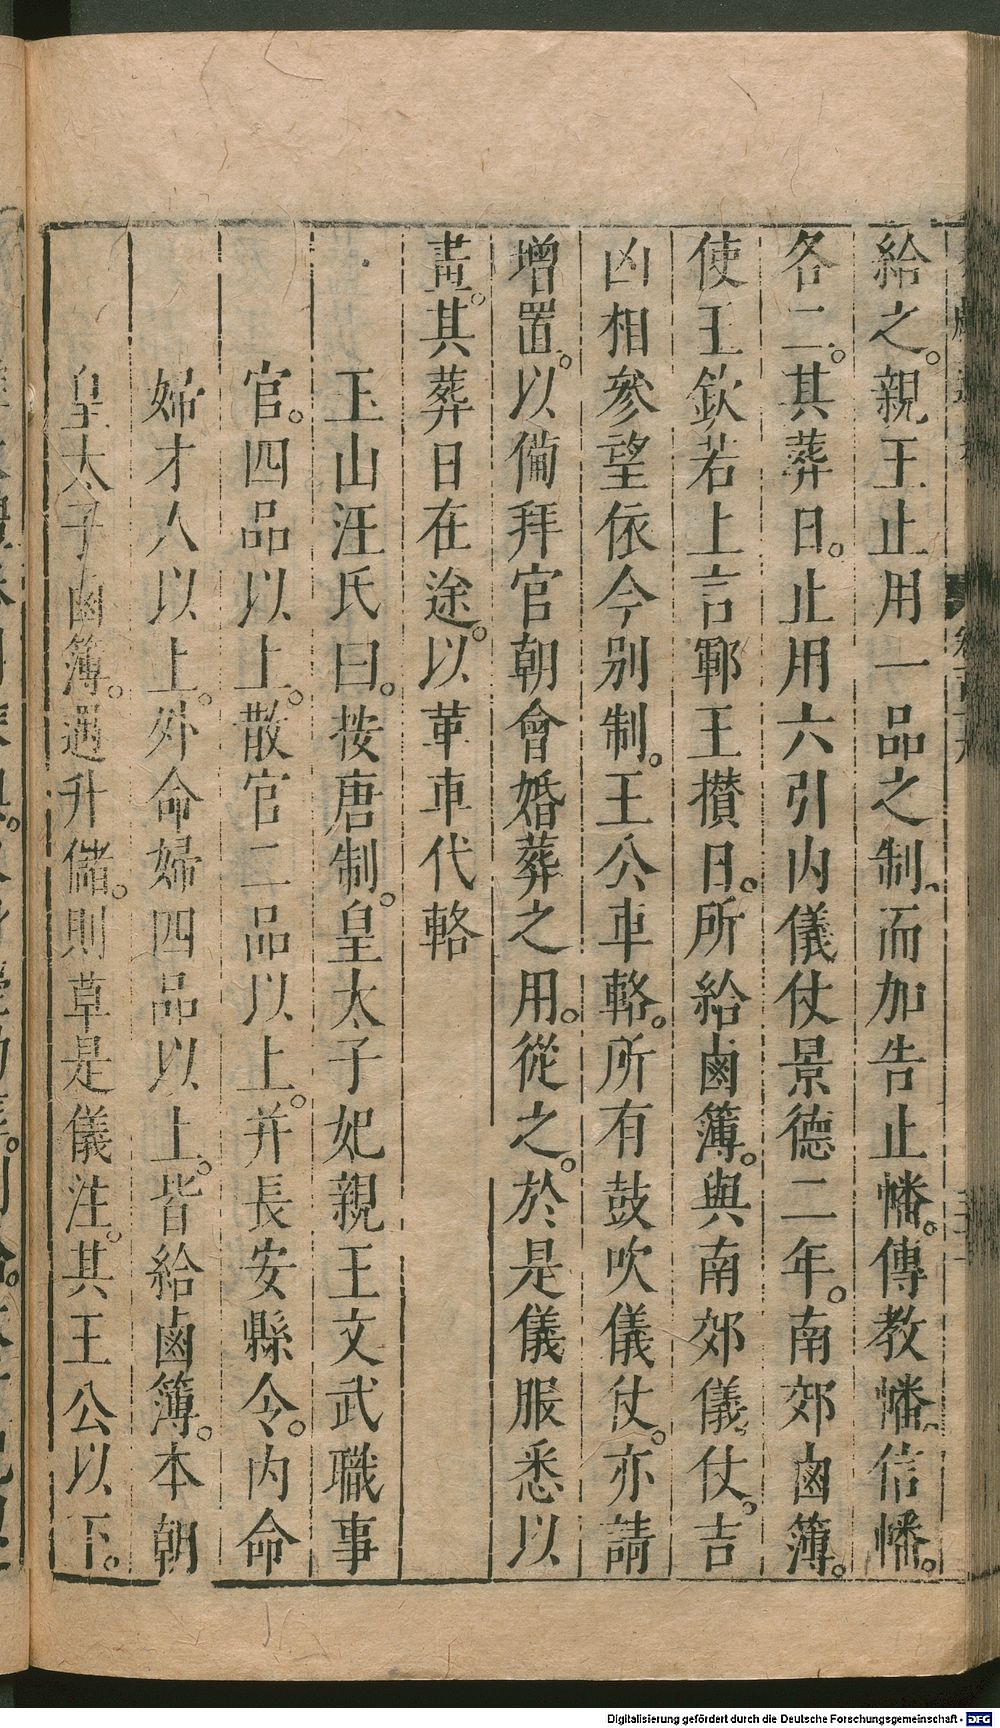 給之。親王止用一品之制、而加告止幡。傳教幡、信幡。
各二。其葬日。止用六引内儀仗景德二年。南郊鹵簿。
使王欽若上言鄆王攢日。所給鹵簿。與南郊儀仗、吉
凶相參望依今別制。王公車輅。所有鼓吹儀仗。亦請
增置。以備拜官朝會婚葬之用。從之。於是儀服悉以
畫。其葬日在途。以革車代輅
玉山汪氏曰。按唐制。皇太子妃親王文武職事
官。四品以上。散官二品以上。并長安縣令。内命
婦才人以上。外命婦四品以上。皆給鹵簿。本朝
皇太子鹵簿。遇升儲。則草是儀注。其王公以下。
Digitalisierung gefördert durch die Deutsche Forschungsgemeinschaft - DFG